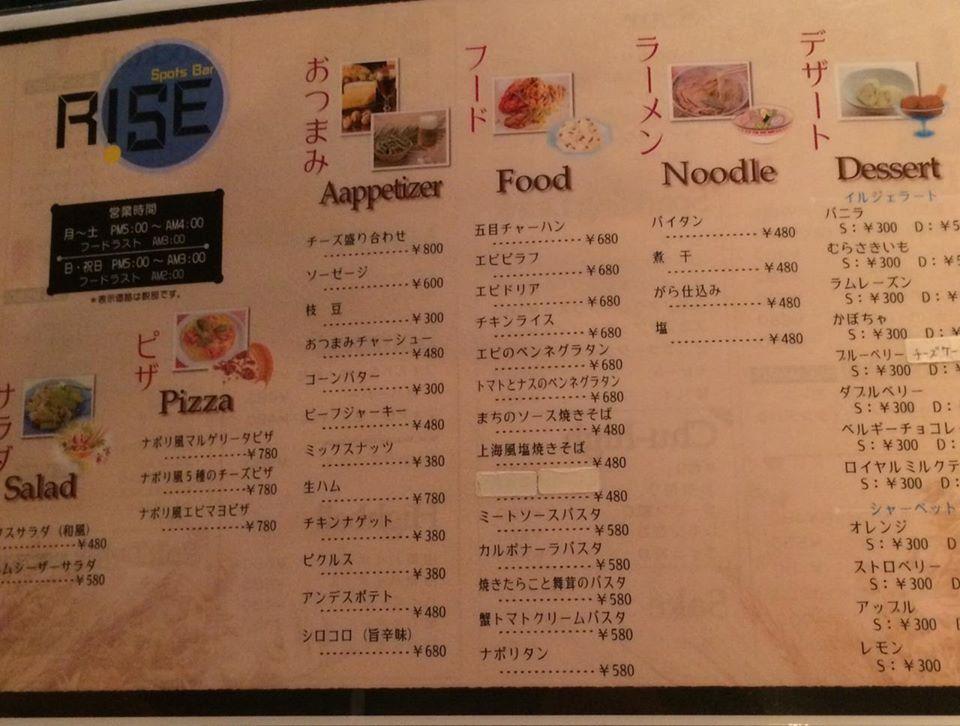 Spots Bar
RISE
営業時間
月～土 PM5:00 ～ AM4:00
フードラスト AM3:00
日・祝日 PM5:00 ～ AM3:00
フードラスト AM2:00
＊表示価格は税抜です。
サラダ
Salad
サラダ（和風）
¥480
ムシーザーサラダ
¥580
ピザ
Pizza
ナポリ風マルゲリータピザ
¥780
ナポリ風５種のチーズピザ
¥780
ナポリ風エビマヨピザ
¥780
おつまみ
Aappetizer
チーズ盛り合わせ
¥800
ソーセージ
¥600
枝 豆
¥300
おつまみチャーシュー
¥480
コーンバター
¥300
ビーフジャーキー
¥480
ミックスナッツ
¥380
生ハム
¥780
チキンナゲット
¥380
ピクルス
¥380
アンデスポテト
¥480
シロコロ（旨辛味）
¥680
フード
Food
五目チャーハン
¥680
エビピラフ
¥680
エビドリア
¥680
チキンライス
¥680
エビのペンネグラタン
¥680
トマトとナスのペンネグラタン
¥680
まちのソース焼きそば
¥480
上海風塩焼きそば
¥480
¥480
ミートソースパスタ
¥580
カルボナーラパスタ
¥580
焼きたらこと舞茸のパスタ
¥580
蟹トマトクリームパスタ
¥580
ナポリタン
¥580
ラーメン
Noodle
パイタン
¥480
煮 干
¥480
がら仕込み
¥480
塩
¥480
デザート
Dessert
イルジェラート
バニラ
S：¥300 D：¥5
むらさきいも
S：¥300 D：¥5
ラムレーズン
S：¥300 D：¥
かぼちゃ
S：¥300 D：¥
ブルーベリー チーズケー
S：¥300 D：¥
ダブルベリー
S：¥300 D：¥
ベルギーチョコレ
S：¥300 D：
ロイヤルミルクテ
S：¥300 D：
シャーベット
オレンジ
S：¥300 D
ストロベリー
S：¥300 D
アップル
S：¥300 D
レモン
S：¥300